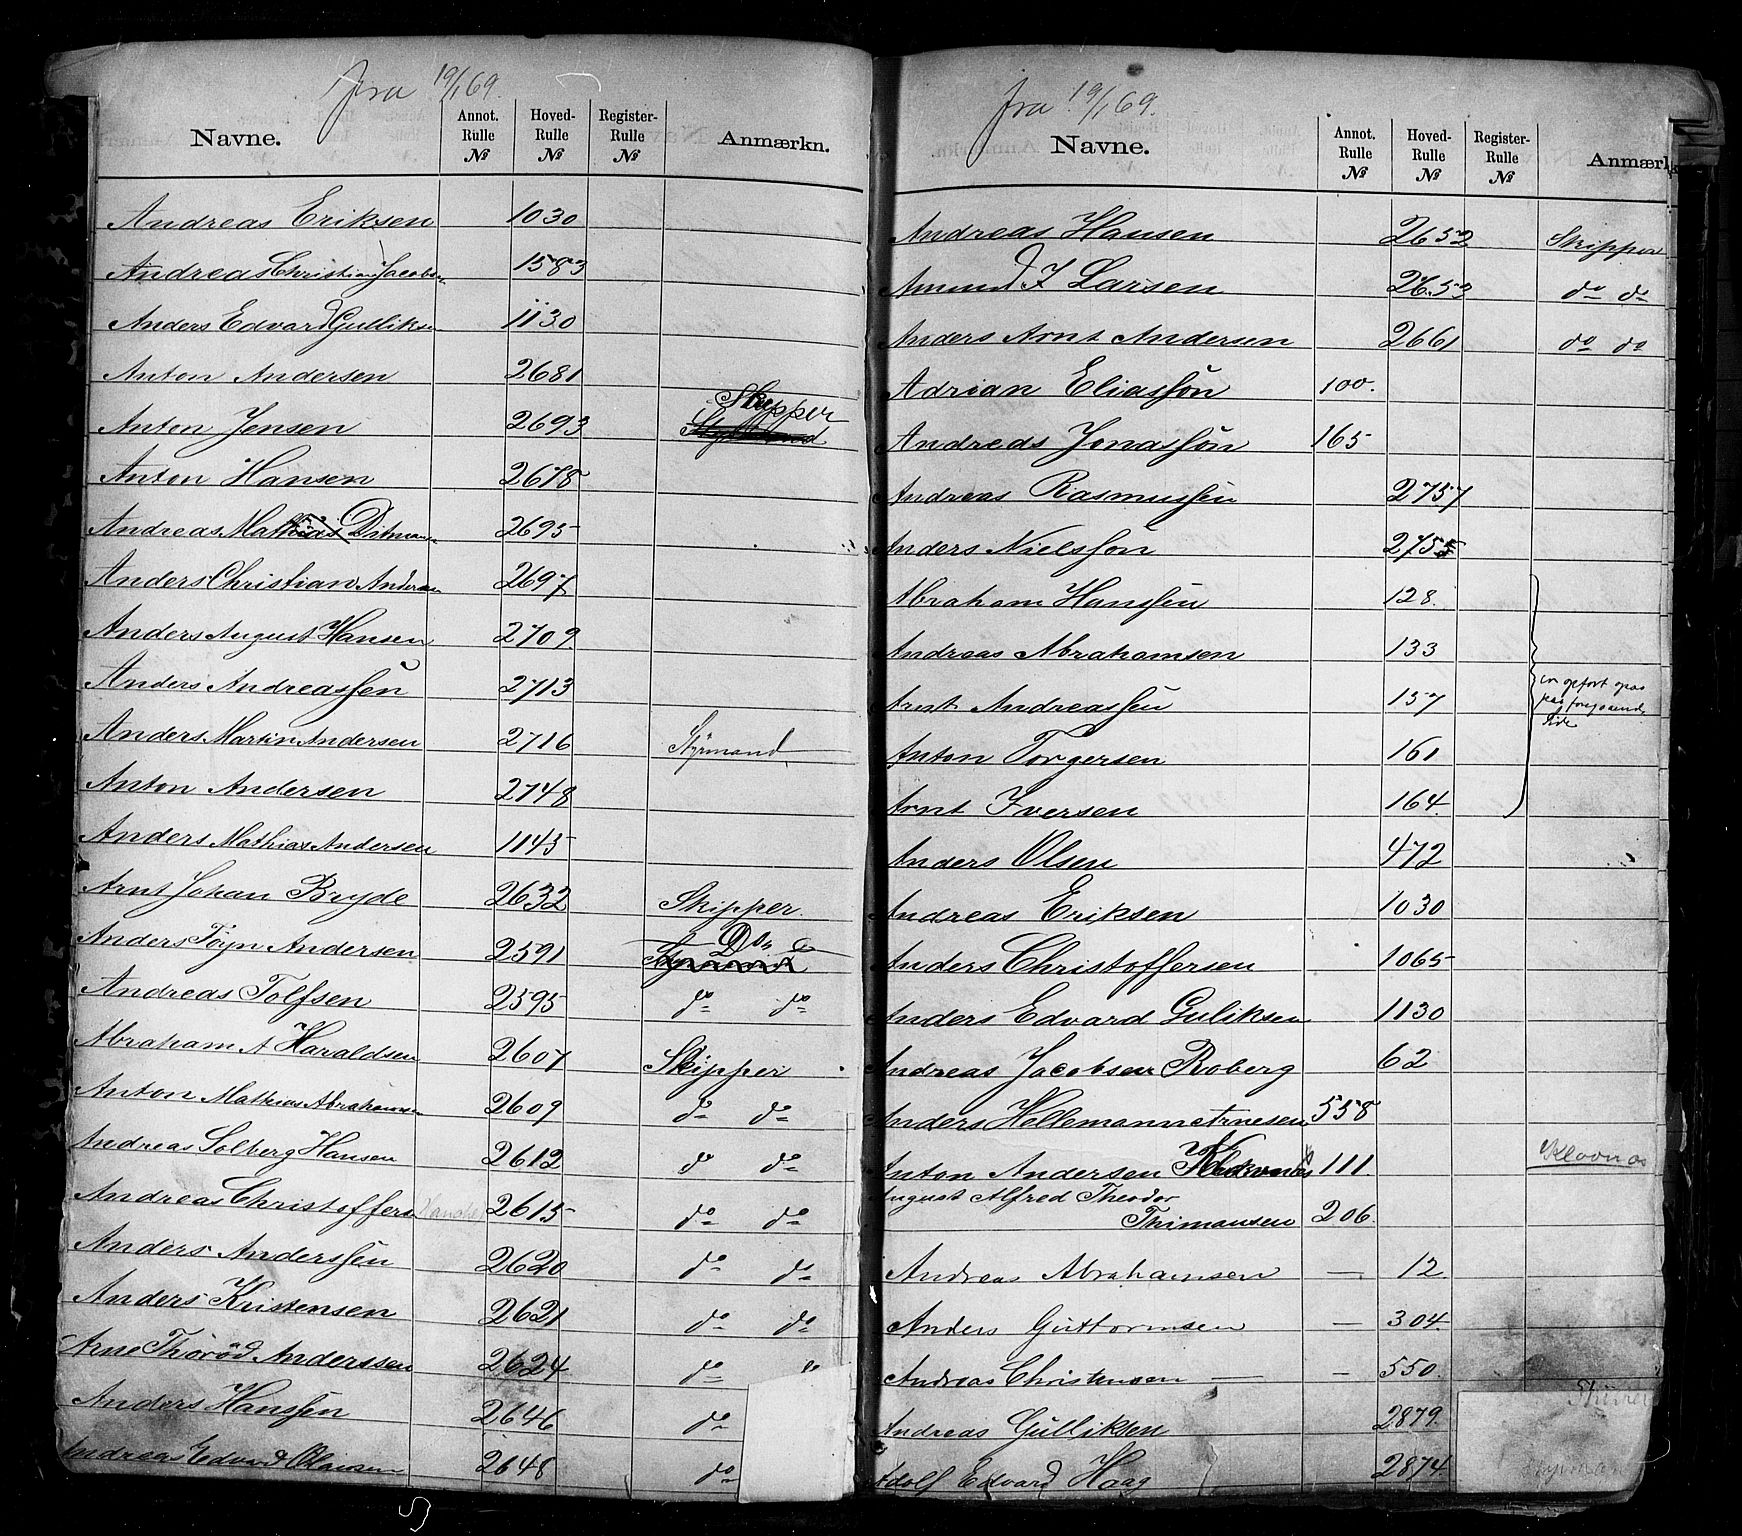 fra 19/1 69.
Navne. Annot. Rulle № Hoved-Rulle № Register-Rulle № Anmærkn.
Andreas Eriksen 1030
Andreas Christian Jacobsen 1583
Anders Edvard Gulliksen 1130
Anton Andersen 2681
Anton Jensen 2693 Skipper
Anton Hansen 2678
Andreas Mathias Ditman 2695
Anders Christian Andersen 2697
Anders August Hansen 2709
Anders Andreassen 2713
Anders Martin Andersen 2716 Styrmand
Anton Andersen 2748
Anders Mathias Andersen 1145
Arnt Johan Bryde 2632 Skipper.
Anders Töyn Andersen 2591 Do
Andreas Tolfsen 2595 do do
Abraham A Haraldsen 2607 Skipper
Anton Mathias Abrahamsen 2609 do do
Andreas Solberg Hansen 2612 do do
Andreas Christoffersen 2615 do do
Anders Anderssen 2620 do do
Anders Kristensen 2621 do do
Arne Thorød Anderssen 2624 do do
Anders Hanssen 2646 do
Andreas Edvard Olausen 2648 do
fra 19/1 69.
Navne. Annot. Rulle № Hoved-Rulle № Register-Rulle № Anmærk
Andreas Hansen 2652 Skipper
Amund J Larsen 2653 do do
Anders Arnt Andersen 2661 do do
Adrian Eliassøn 100.
Andreas Jonassøn 165
Andreas Rasmussen 2757
Anders Nielssøn 2755
Abraham Hanssen 128.
Andreas Abrahamsen 133
Arnt Andreassen 157
Anton Torgersen 161
Arnt Iversen 164
Anders Olsen 472
Andreas Eriksen 1030
Anders Christoffersen 1065
Anders Edvard Guliksen 1130
Andreas Jacobsen Roberg 62
Anders Hellemann Arnesen 558
Anton Andersen Klovnæs 111 Klovnæs
August Alfred Theodor
Thimansen 206
Andreas Abrahamsen — 12
Anders Guttormsen — 304.
Andreas Christensen — — 550.
Andreas Gulliksen 2879.
Adolf Edvard Haag 2874